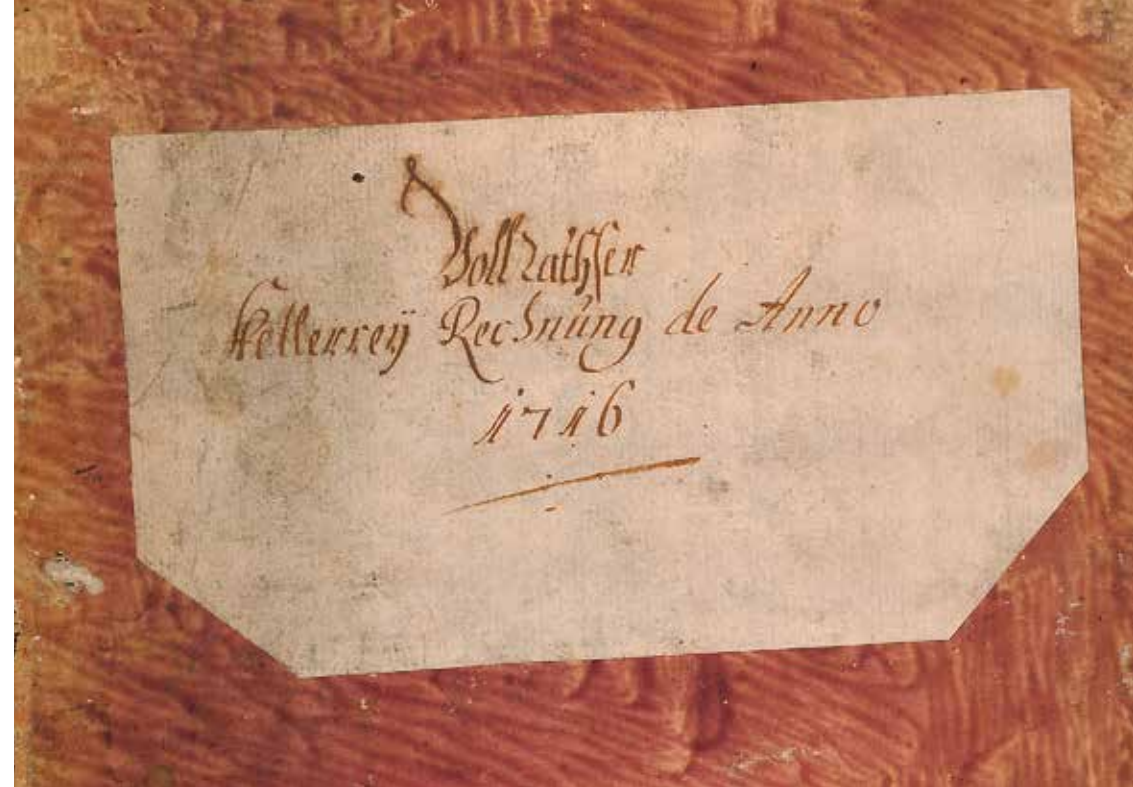 Vollrathser
Kellerreÿ Rechnung de Anno
1716